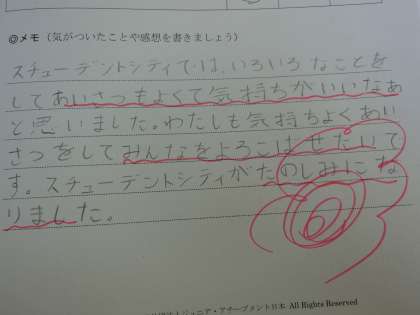 ◎メモ（気がついたことや感想を書きましょう）
スチューデントシティでは、いろいろなことを
してあいさつもよくて気持ちがいいなぁ
と思いました。わたしも気持ちよくあい
さつをしてみんなをよろこばせたいで
す。スチューデントシティがたのしみにな
りました。
ジュニア・アチーブメント日本 All Rights Reserved